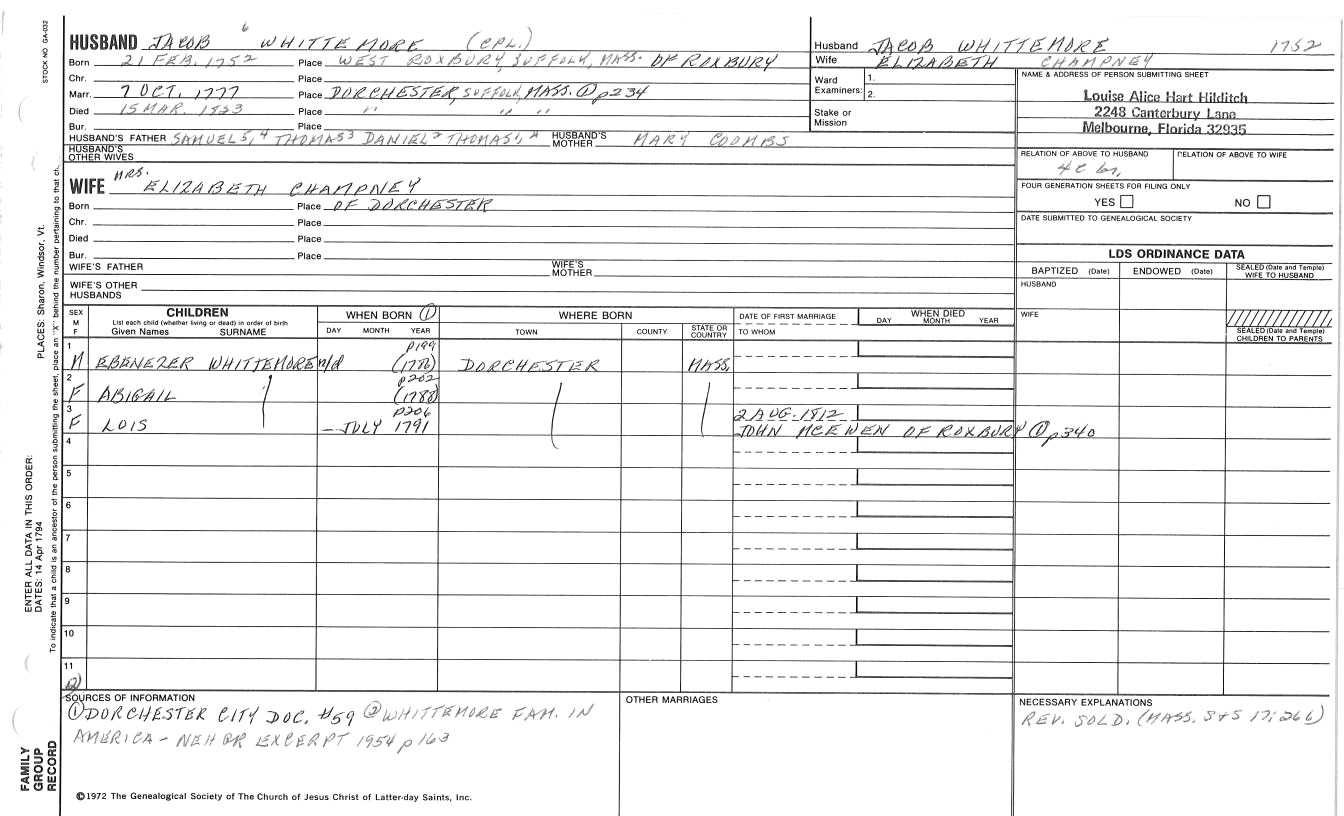 STOCK NO GA-032
HUSBAND JACOB 6 WHITTEMORE (CPL.)
Born 21 FEB. 1752 Place WEST ROXBURY, SUFFOLK, MASS. OF ROXBURY
Chr. Place
Marr. 7 OCT. 1777 Place DORCHESTER, SUFFOLK, MASS. ① p234
Died 15 MAR. Place " " "
Bur. Place
HUSBAND'S FATHER SAMUEL5, 4 THOMAS3 DANIEL2 THOMAS1, HUSBAND'S MOTHER MARY COOMBS
HUSBAND'S OTHER WIVES
WIFE MRS. ELIZABETH CHAMPNEY
Born Place OF DORCHESTER
Chr. Place
Died Place
Bur. Place
WIFE'S FATHER WIFE'S MOTHER
WIFE'S OTHER HUSBANDS
Husband JACOB WHITTEMORE 1752
Wife ELIZABETH CHAMPNEY
Ward Examiners: 1. 2.
Stake or Mission
NAME & ADDRESS OF PERSON SUBMITTING SHEET
Louise Alice Hart Hilditch
2248 Canterbury Lane
Melbourne, Florida 32935
RELATION OF ABOVE TO HUSBAND RELATION OF ABOVE TO WIFE
4C
FOUR GENERATION SHEETS FOR FILING ONLY
YES NO
DATE SUBMITTED TO GENEALOGICAL SOCIETY
LDS ORDINANCE DATA
BAPTIZED (Date) ENDOWED (Date) SEALED (Date and Temple) WIFE TO HUSBAND
HUSBAND
WIFE
SEALED (Date and Temple) CHILDREN TO PARENTS
SEX M F CHILDREN WHEN BORN ① WHERE BORN DATE OF FIRST MARRIAGE WHEN DIED
List each child (whether living or dead) in order of birth
Given Names SURNAME DAY MONTH YEAR TOWN COUNTY STATE OR COUNTRY TO WHOM DAY MONTH YEAR
1 p199
M EBENEZER WHITTEMORE n/d (1786) DORCHESTER MASS.
2 p202
F ABIGAIL (1788)
3 p206 2 AUG. 1812
F LOIS – JULY 1791 JOHN MCEWEN OF ROXBURY ① p340
4
5
6
7
8
9
10
11
12
SOURCES OF INFORMATION
① DORCHESTER CITY DOC. #59 ② WHITTEMORE FAM. IN
AMERICA – NEHGR EXCERPT 1954 p163
OTHER MARRIAGES
NECESSARY EXPLANATIONS
REV. SOLD. (MASS. S+S 17:266)
©1972 The Genealogical Society of The Church of Jesus Christ of Latter-day Saints, Inc.
FAMILY GROUP RECORD
ENTER ALL DATA IN THIS ORDER:
DATES: 14 Apr 1794
PLACES: Sharon, Windsor, Vt.
To indicate that a child is an ancestor of the person submitting the sheet, place an "X" behind the number pertaining to that ch.